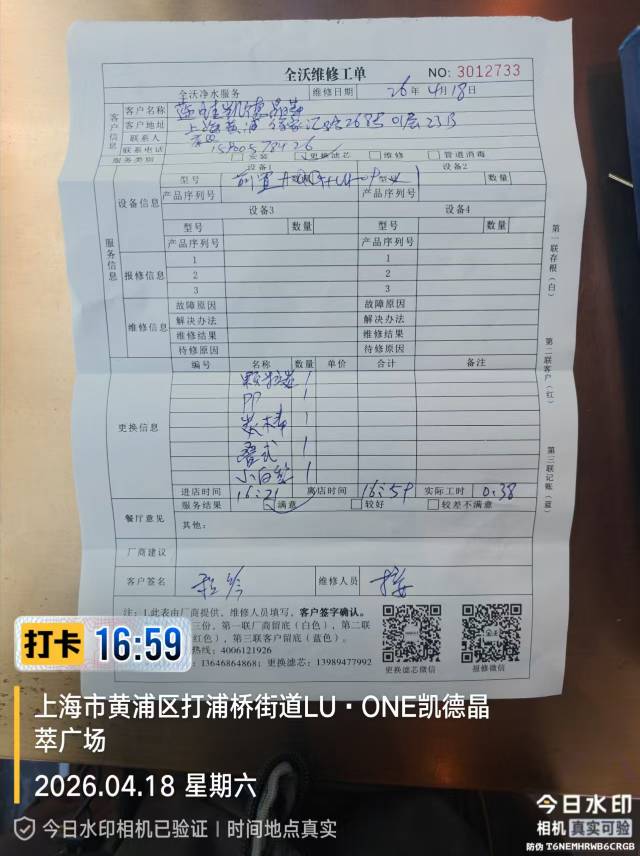 全沃维修工单
NO: 3012733
全沃净水服务 维修日期 26年4月18日
客户信息
客户名称 蓝蛙凯德晶萃
客户地址 上海黄浦徐家汇路268号01层23B
联系人
联系电话
服务类别 安装 更换滤芯 维修 管道消毒
服务信息
设备信息
设备1 设备2
型号 前置 数量 型号 1 数量
产品序列号 产品序列号
设备3 设备4
型号 数量 型号 数量
产品序列号 产品序列号
报修信息
1 1
2 2
3 3
维修信息
故障原因 故障原因
解决办法 解决办法
维修结果 维修结果
待修原因 待修原因
更换信息
编号 名称 数量 单价 合计 备注
颗粒炭 1
PP 1
炭棒 1
叠式 1
小白盐 1
进店时间 16:21 离店时间 16:59 实际工时 0.38
服务结果 满意 较好 较差不满意
餐厅意见 其他:
厂商建议
客户签名 维修人员
注:1.此表由厂商提供,维修人员填写,客户签字确认。
三份,第一联厂商留底(白色),第二联
红色),第三联客户留底(蓝色)。
热线:4006121926
:13646864868;更换滤芯:13989477992
更换滤芯微信 报修微信
第一联存根(白)
第二联客户(红)
第三联记账(蓝)
打卡 16:59
上海市黄浦区打浦桥街道LU·ONE凯德晶
萃广场
2026.04.18 星期六
今日水印相机已验证 | 时间地点真实
今日水印
相机 真实可验
防伪 T6NEMHRWB6CRGB